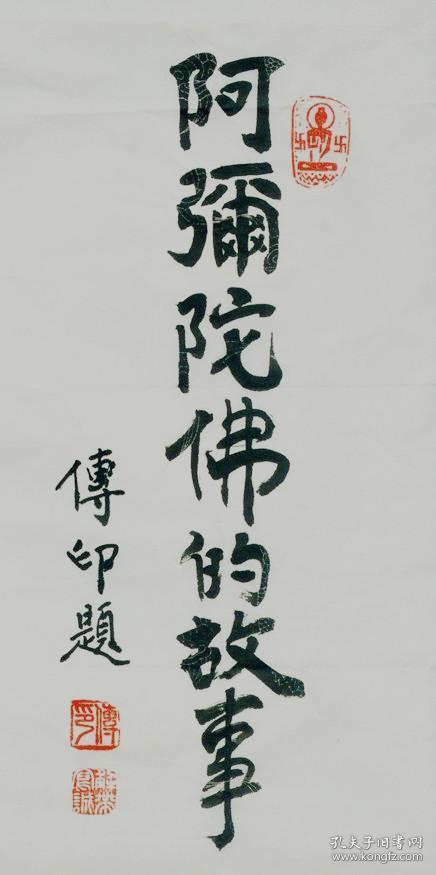 阿彌陀佛的故事
傳印題
傳印
孔夫子旧书网
www.kongfz.com